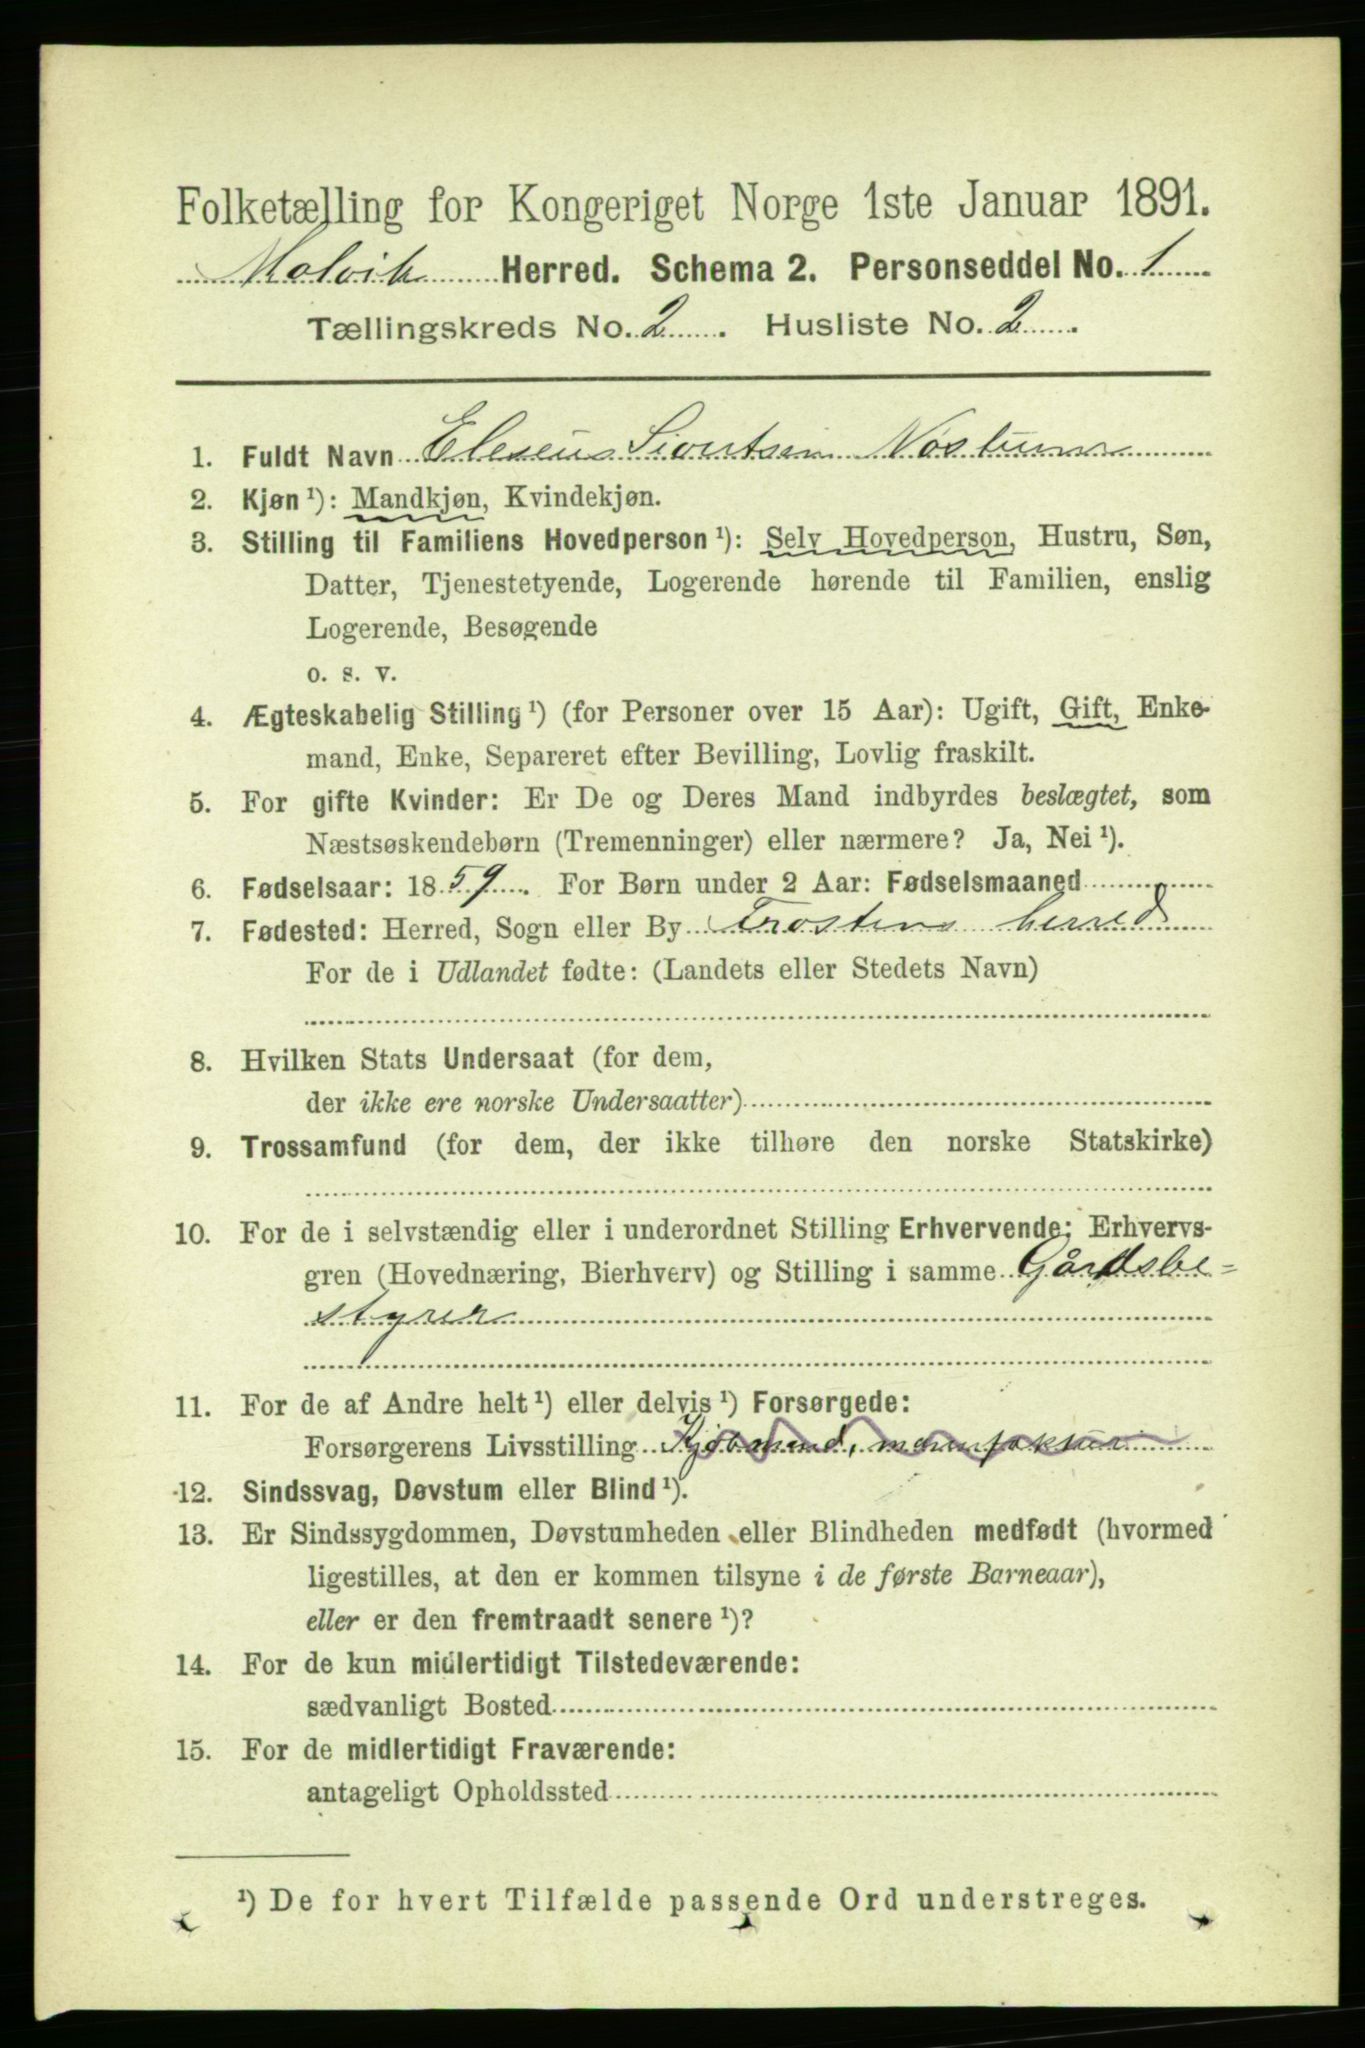 Folketælling for Kongeriget Norge 1ste Januar 1891.
Malvik Herred. Schema 2. Personseddel No. 1
Tællingskreds No. 2. Husliste No. 2.
1. Fuldt Navn Eleseus Sivertsen
2. Kjøn ¹): Mandkjøn, Kvindekjøn.
3. Stilling til Familiens Hovedperson ¹): Selv Hovedperson, Hustru, Søn,
Datter, Tjenestetyende, Logerende hørende til Familien, enslig
Logerende, Besøgende
o. s. v.
4. Ægteskabelig Stilling ¹) (for Personer over 15 Aar): Ugift, Gift, Enke-
mand, Enke, Separeret efter Bevilling, Lovlig fraskilt.
5. For gifte Kvinder: Er De og Deres Mand indbyrdes beslægtet, som
Næstsøskendebørn (Tremenninger) eller nærmere? Ja, Nei ¹).
6. Fødselsaar: 1859. For Børn under 2 Aar: Fødselsmaaned
7. Fødested: Herred, Sogn eller By Frostens herred
For de i Udlandet fødte: (Landets eller Stedets Navn)
8. Hvilken Stats Undersaat (for dem,
der ikke ere norske Undersaatter)
9. Trossamfund (for dem, der ikke tilhøre den norske Statskirke)
10. For de i selvstændig eller i underordnet Stilling Erhvervende: Erhvervs-
gren (Hovednæring, Bierhverv) og Stilling i samme Gårdsbe=
styrer
11. For de af Andre helt ¹) eller delvis ¹) Forsørgede:
Forsørgerens Livsstilling Kjøbmand, manufaktur
12. Sindssvag, Døvstum eller Blind ¹).
13. Er Sindssygdommen, Døvstumheden eller Blindheden medfødt (hvormed
ligestilles, at den er kommen tilsyne i de første Barneaar),
eller er den fremtraadt senere ¹)?
14. For de kun midlertidigt Tilstedeværende:
sædvanligt Bosted
15. For de midlertidigt Fraværende:
antageligt Opholdssted
¹) De for hvert Tilfælde passende Ord understreges.